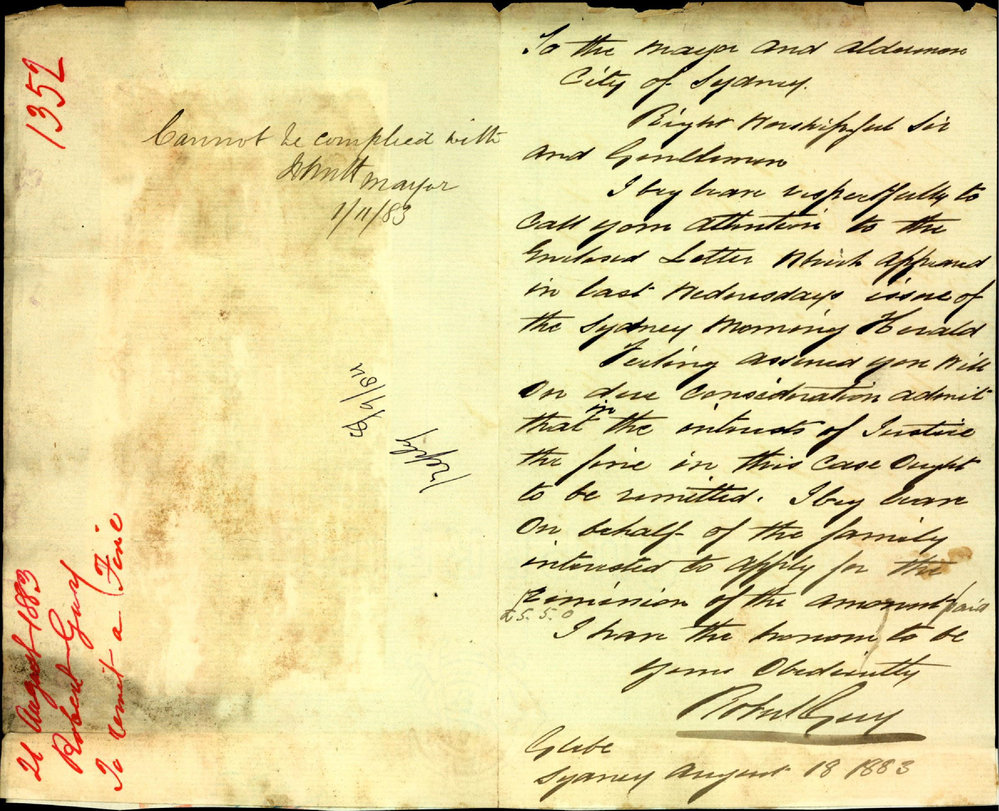 1352
Cannot be complied with
Mayor
1/11/83
reply
21 August 1883
Robert Guy
To remit a Fine
To the Mayor and Aldermen
City of Sydney.
Right Worshipful Sir
and Gentlemen
I beg leave respectfully to
Call your attention to the
Enclosed Letter Which Appeared
in last Wednesdays issue of
the Sydney Morning Herald
Feeling assured you will
On due Consideration admit
that in the interests of Justice
the fine in this Case Ought
to be remitted. I beg leave
On behalf of the family
interested to apply for the
remission of the amount paid
£5.5.0
I have the honour to be
Yours Obediently
Robert Guy
Glebe
Sydney August 18 1883